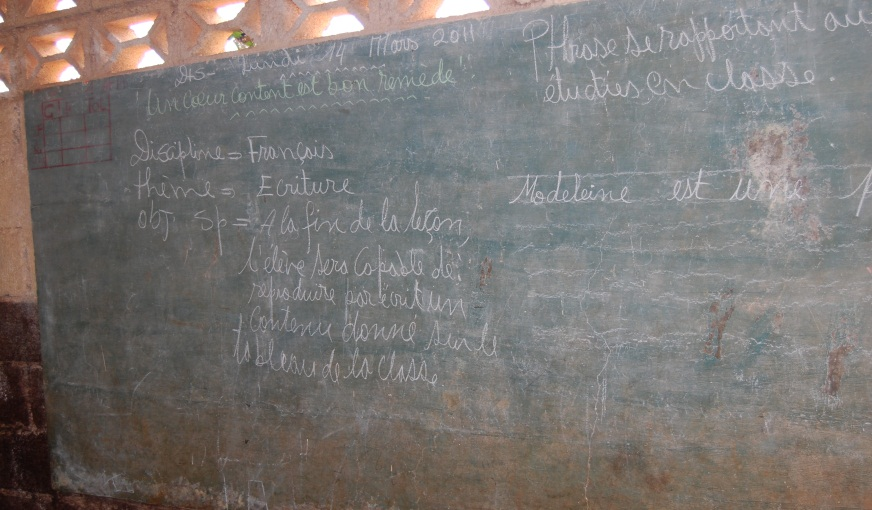 Lundi 14 Mars 2011
"Un coeur content est bon remède"
Discipline = François
thème = Ecriture
obj Sp = A la fin de la leçon,
l'élève sera Capable de:
reproduire par écrit un
Contenu donné sur le
tableau de la classe
Phrase se rapportant au
étudies en classe.
Modeleine est une